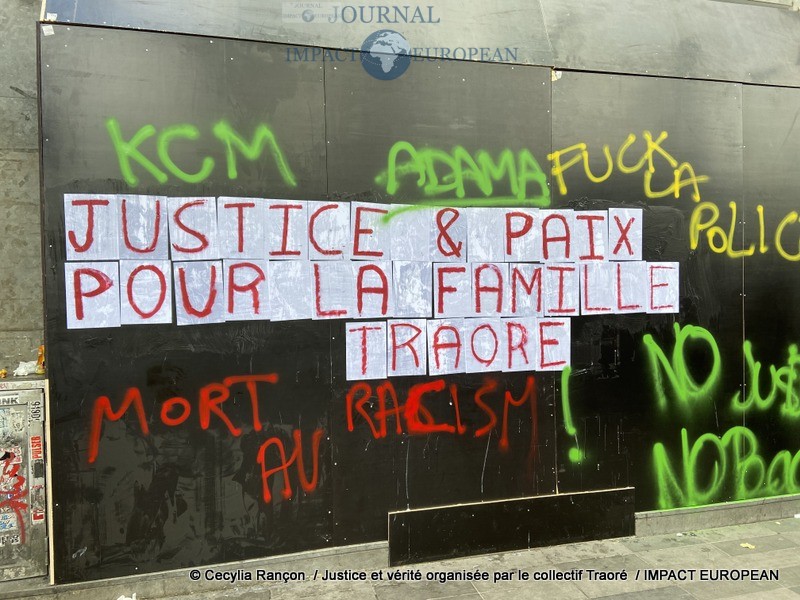 JOURNAL
IMPACT EUROPEAN
KCM
ADAMA
FUCK
LA
POLIC
JUSTICE & PAIX
POUR LA FAMILLE
TRAORE
MORT
AU
RACISM
!
NO
NO
PULSER
© Cecylia Rançon / Justice et vérité organisée par le collectif Traoré / IMPACT EUROPEAN